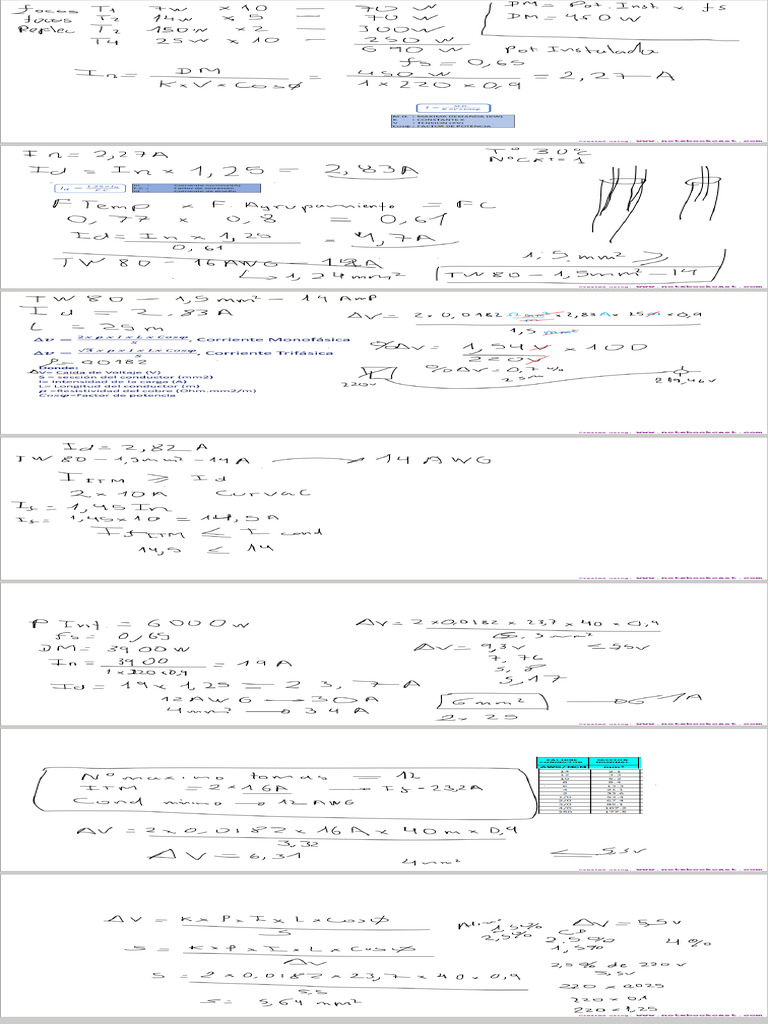 focos T1 7w x 10 — 70 w
focos T2 14w x 5 — 70 w
Reflec T2 150w x 2 — 300w
T4 25w x 10 — 250 w
690 w
DM = Pot. Inst x fs
DM = 450 w
Pot Instalada
fs = 0,65
In = DM / KxVxCosø = 450 w / 1 x 220 x 0,9 = 2,27 A
M.D. : MAXIMA DEMANDA (KW)
K : CONSTANTE K
V : TENSION (KV)
Cosφ : FACTOR DE POTENCIA
Created using: www.notebookcast.com
In = 2,27A
Id = In x 1,25 = 2,83A
T° 30°C
N° CKT = 1
F Temp x F. Agrupamiento = FC
0,77 x 0,8 = 0,61
Id = In x 1,25 / 0,61 = 4,7A
TW 80 – 16 AWG – 12A
1,24 mm²
1,5 mm² ≥
TW 80 – 1,5mm² – 14
Created using: www.notebookcast.com
TW 80 – 1,5mm² – 14 Amp
Id = 2.83A
L = 25m
Δv = 2xρxIxLxCosφ / S , Corriente Monofásica
Δv = √3xρxIxLxCosφ / S , Corriente Trifásica
ρ = 0,0182
Donde:
ΔV= Caida de Voltaje (V)
S = sección del conductor (mm2)
I= Intensidad de la carga (A)
L= Longitud del conductor (m)
ρ =Resistividad del cobre (Ohm.mm2/m)
Cosφ=Factor de potencia
ΔV = 2 x 0,0182 Ω mm²/m x 2,83A x 25m x 0,9 / 1,5 mm²
%ΔV = 1,54 V / 220V x 100
%ΔV = 0,7 %
220v
25m
219,46v
Created using: www.notebookcast.com
Id = 2,82 A
TW 80 – 1,5mm² – 14A → 14 AWG
I ITM ≥ Id
2 x 10A Curva C
If = 1,45 In
If = 1,45 x 10 = 14,5A
If ITM ≤ I cond
14,5 ≤ 14
Created using: www.notebookcast.com
P Inst. = 6000w
fs = 0,65
DM = 3900w
In = 3900 / 1 x 220 x 0,9 = 19 A
Id = 19 x 1,25 = 23,7A
12 AWG → 30A
4mm² → 34A
ΔV = 2 x 0,0182 x 23,7 x 40 x 0,9
ΔV = 9,3v ≤ 5,5v
7,76
5,8
5,17
6 mm²
2 x 25
Created using: www.notebookcast.com
N° maximo tomas = 12
ITM = 2 x 16A → If = 23,2A
Cond minimo → 12 AWG
ΔV = 2 x 0,0182 x 16A x 40m x 0,9 / 3,32
ΔV = 6,31
4mm²
≤ 5,5v
Created using: www.notebookcast.com
ΔV = K x P x I x L x Cosø / S
S = K x P x I x L x Cosø / ΔV
S = 2 x 0,0182 x 23,7 x 40 x 0,9 / 5,5
S = 5,64 mm²
1,5%
2,5%
2.5%
1,5%
4%
ΔV = 5,5v
2,5% de 220v
5,5v
220 x 0,025
220 x 0,1
220 x 1,25
Created using: www.notebookcast.com